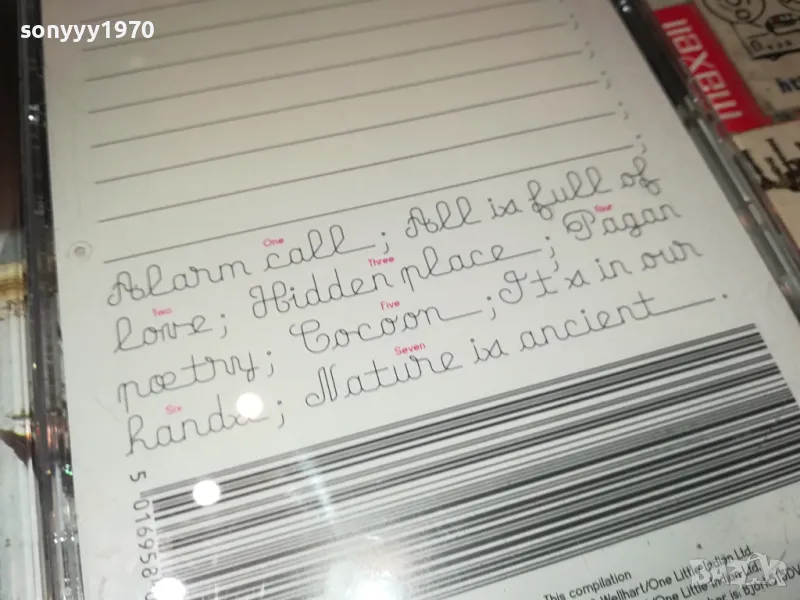 sonyyy1970
maxell
One
Four
Alarm call; All is full of
Two
Three
love; Hidden place; Pagan
Five
poetry; Cocoon; It's in our
Six
Seven
hands; Nature is ancient.
5 016958
This compilation
Wellhart/One Little Indian Ltd.
/One Little Indian Ltd.